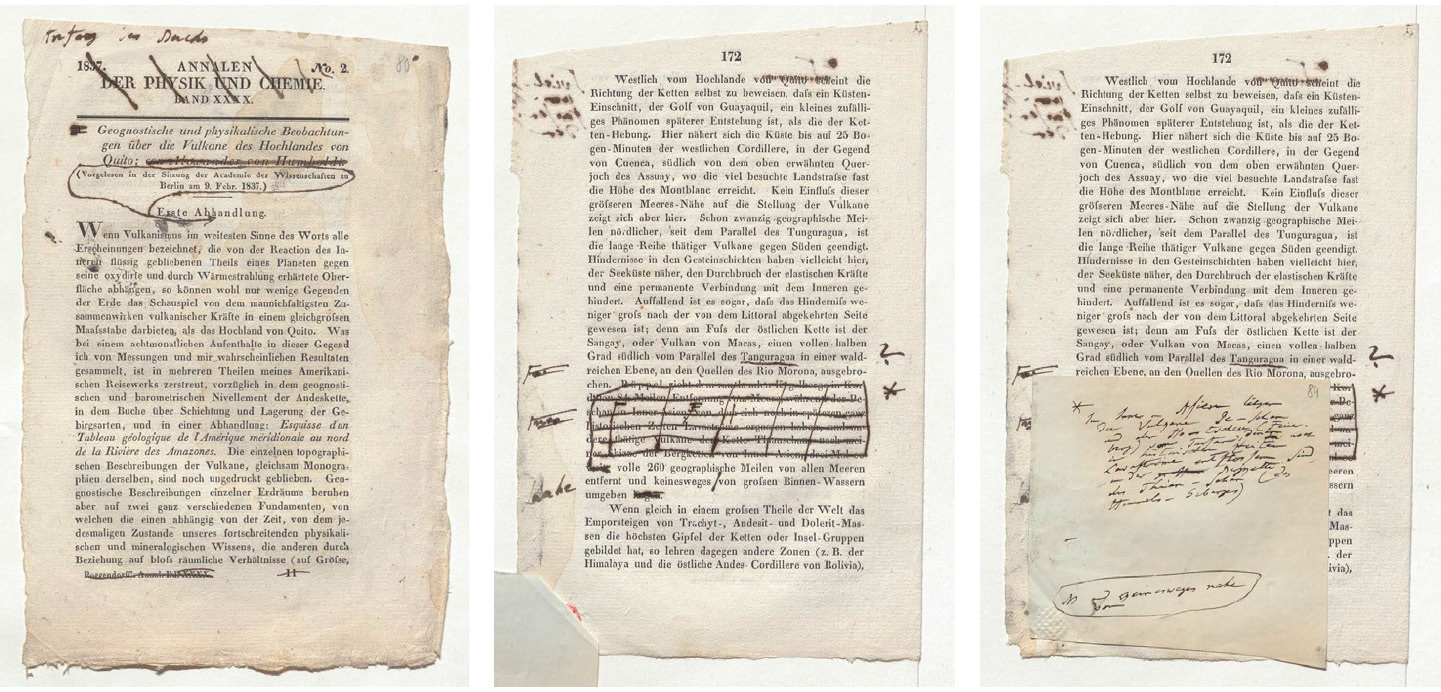 Anfang des Buchs
80
1837. ANNALEN No. 2.
DER PHYSIK UND CHEMIE.
BAND XXXX.
Geognostische und physikalische Beobachtun-
gen über die Vulkane des Hochlandes von
Quito; von Alexander von Humboldt.
(Vorgelesen in der Sitzung der Academie der Wissenschaften zu
Berlin am 9. Febr. 1837.)
Erste Abhandlung.
Wenn Vulkanismus im weitesten Sinne des Worts alle
Erscheinungen bezeichnet, die von der Reaction des In-
neren flüssig gebliebenen Theils eines Planeten gegen
seine oxydirte und durch Wärmestrahlung erhärtete Ober-
fläche abhängen, so können wohl nur wenige Gegenden
der Erde das Schauspiel von dem mannichfaltigsten Zu-
sammenwirken vulkanischer Kräfte in einem gleichgroſsen
Maaſsstabe darbieten, als das Hochland von Quito. Was
bei einem achtmonatlichen Aufenthalte in dieser Gegend
ich von Messungen und mir wahrscheinlichen Resultaten
gesammelt, ist in mehreren Theilen meines Amerikani-
schen Reisewerks zerstreut, vorzüglich in dem geognosti-
schen und barometrischen Nivellement der Andeskette,
in dem Buche über Schichtung und Lagerung der Ge-
birgsarten, und in einer Abhandlung: Esquisse d'un
Tableau géologique de l'Amérique méridionale au nord
de la Rivière des Amazones. Die einzelnen topographi-
schen Beschreibungen der Vulkane, gleichsam Monogra-
phieu derselben, sind noch ungedruckt geblieben. Geo-
gnostische Beschreibungen einzelner Erdräume beruhen
aber auf zwei ganz verschiedenen Fundamenten, von
welchen die einen abhängig von der Zeit, von dem je-
desmaligen Zustande unseres fortschreitenden physikali-
schen und mineralogischen Wissens, die anderen durch
Beziehung auf bloſs räumliche Verhältnisse (auf Gröſse,
Poggendorff's Annal. Bd. XXXX. 11
172
Westlich vom Hochlande von Quito scheint die
Richtung der Ketten selbst zu beweisen, daſs ein Küsten-
Einschnitt, der Golf von Guayaquil, ein kleines zufälli-
ges Phänomen späterer Entstelung ist, als die der Ket-
ten-Hebung. Hier nähert sich die Küste bis auf 25 Bo-
gen-Minuten der westlichen Cordillere, in der Gegend
von Cuenca, südlich von dem oben erwähnten Quer-
joch des Assuay, wo die viel besuchte Landstraſse fast
die Höhe des Montblanc erreicht. Kein Einfluſs dieser
gröſseren Meeres-Nähe auf die Stellung der Vulkane
zeigt sich aber hier. Schon zwanzig geographische Mei-
len nördlicher, seit dem Parallel des Tunguragua, ist
die lange Reihe thätiger Vulkane gegen Süden geendigt.
Hindernisse in den Gesteinschichten haben vielleicht hier,
der Seeküste näher, den Durchbruch der elastischen Kräfte
und eine permanente Verbindung mit dem Inneren ge-
hindert. Auffallend ist es sogar, daſs das Hinderniſs we-
niger groſs nach der von dem Littoral abgekehrten Seite
gewesen ist; denn am Fuſs der östlichen Kette ist der
Sangay, oder Vulkan von Macas, einen vollen halben
Grad südlich vom Parallel des Tanguragua in einer wald-
reichen Ebene, an den Quellen des Rio Morona, ausgebro-
chen.
?
*
volle 260 geographische Meilen von allen Meeren
entfernt und keinesweges von groſsen Binnen-Wassern
umgeben
nahe
Wenn gleich in einem groſsen Theile der Welt das
Emporsteigen von Trachyt-, Andesit- und Dolerit-Mas-
sen die höchsten Gipfel der Ketten oder Insel-Gruppen
gebildet hat, so lehren dagegen andere Zonen (z. B. der
Himalaya und die östliche Andes-Cordillere von Bolivia),
172
Westlich vom Hochlande von Quito scheint die
Richtung der Ketten selbst zu beweisen, daſs ein Küsten-
Einschnitt, der Golf von Guayaquil, ein kleines zufälli-
ges Phänomen späterer Entstelung ist, als die der Ket-
ten-Hebung. Hier nähert sich die Küste bis auf 25 Bo-
gen-Minuten der westlichen Cordillere, in der Gegend
von Cuenca, südlich von dem oben erwähnten Quer-
joch des Assuay, wo die viel besuchte Landstraſse fast
die Höhe des Montblanc erreicht. Kein Einfluſs dieser
gröſseren Meeres-Nähe auf die Stellung der Vulkane
zeigt sich aber hier. Schon zwanzig geographische Mei-
len nördlicher, seit dem Parallel des Tunguragua, ist
die lange Reihe thätiger Vulkane gegen Süden geendigt.
Hindernisse in den Gesteinschichten haben vielleicht hier,
der Seeküste näher, den Durchbruch der elastischen Kräfte
und eine permanente Verbindung mit dem Inneren ge-
hindert. Auffallend ist es sogar, daſs das Hinderniſs we-
niger groſs nach der von dem Littoral abgekehrten Seite
gewesen ist; denn am Fuſs der östlichen Kette ist der
Sangay, oder Vulkan von Macas, einen vollen halben
Grad südlich vom Parallel des Tanguragua in einer wald-
reichen Ebene, an den Quellen des Rio Morona, ausgebro-
?
*
84
* In Inner-Asien liegen
die Vulkane Pe-schan
und der Ho-tscheu
des Thian-schan (des
Himmels-Gebirges)
und keinesweges nahe
von
ssern
t das
Mas-
ppen
der
ivia),